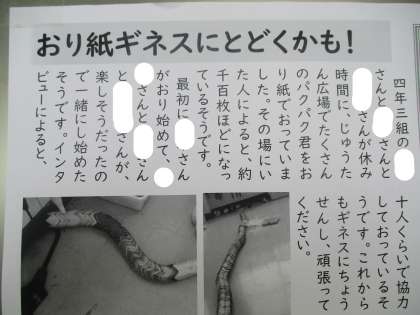 おり紙ギネスにとどくかも!
四年三組の
さんと さんと
さんが休み
時間に、じゅうた
ん広場でたくさん
のパクパク君をお
り紙でおっていま
した。その場にい
た人によると、約
千百枚ほどになっ
ているそうです。
最初に さん
がおり始めて、
さんと さん
と、 さんが、
楽しそうだったの
で一緒にし始めた
そうです。インタ
ビューによると、
十人くらいで協力
しておっているそ
うです。これから
もギネスにちょう
せんし、頑張って
ください。